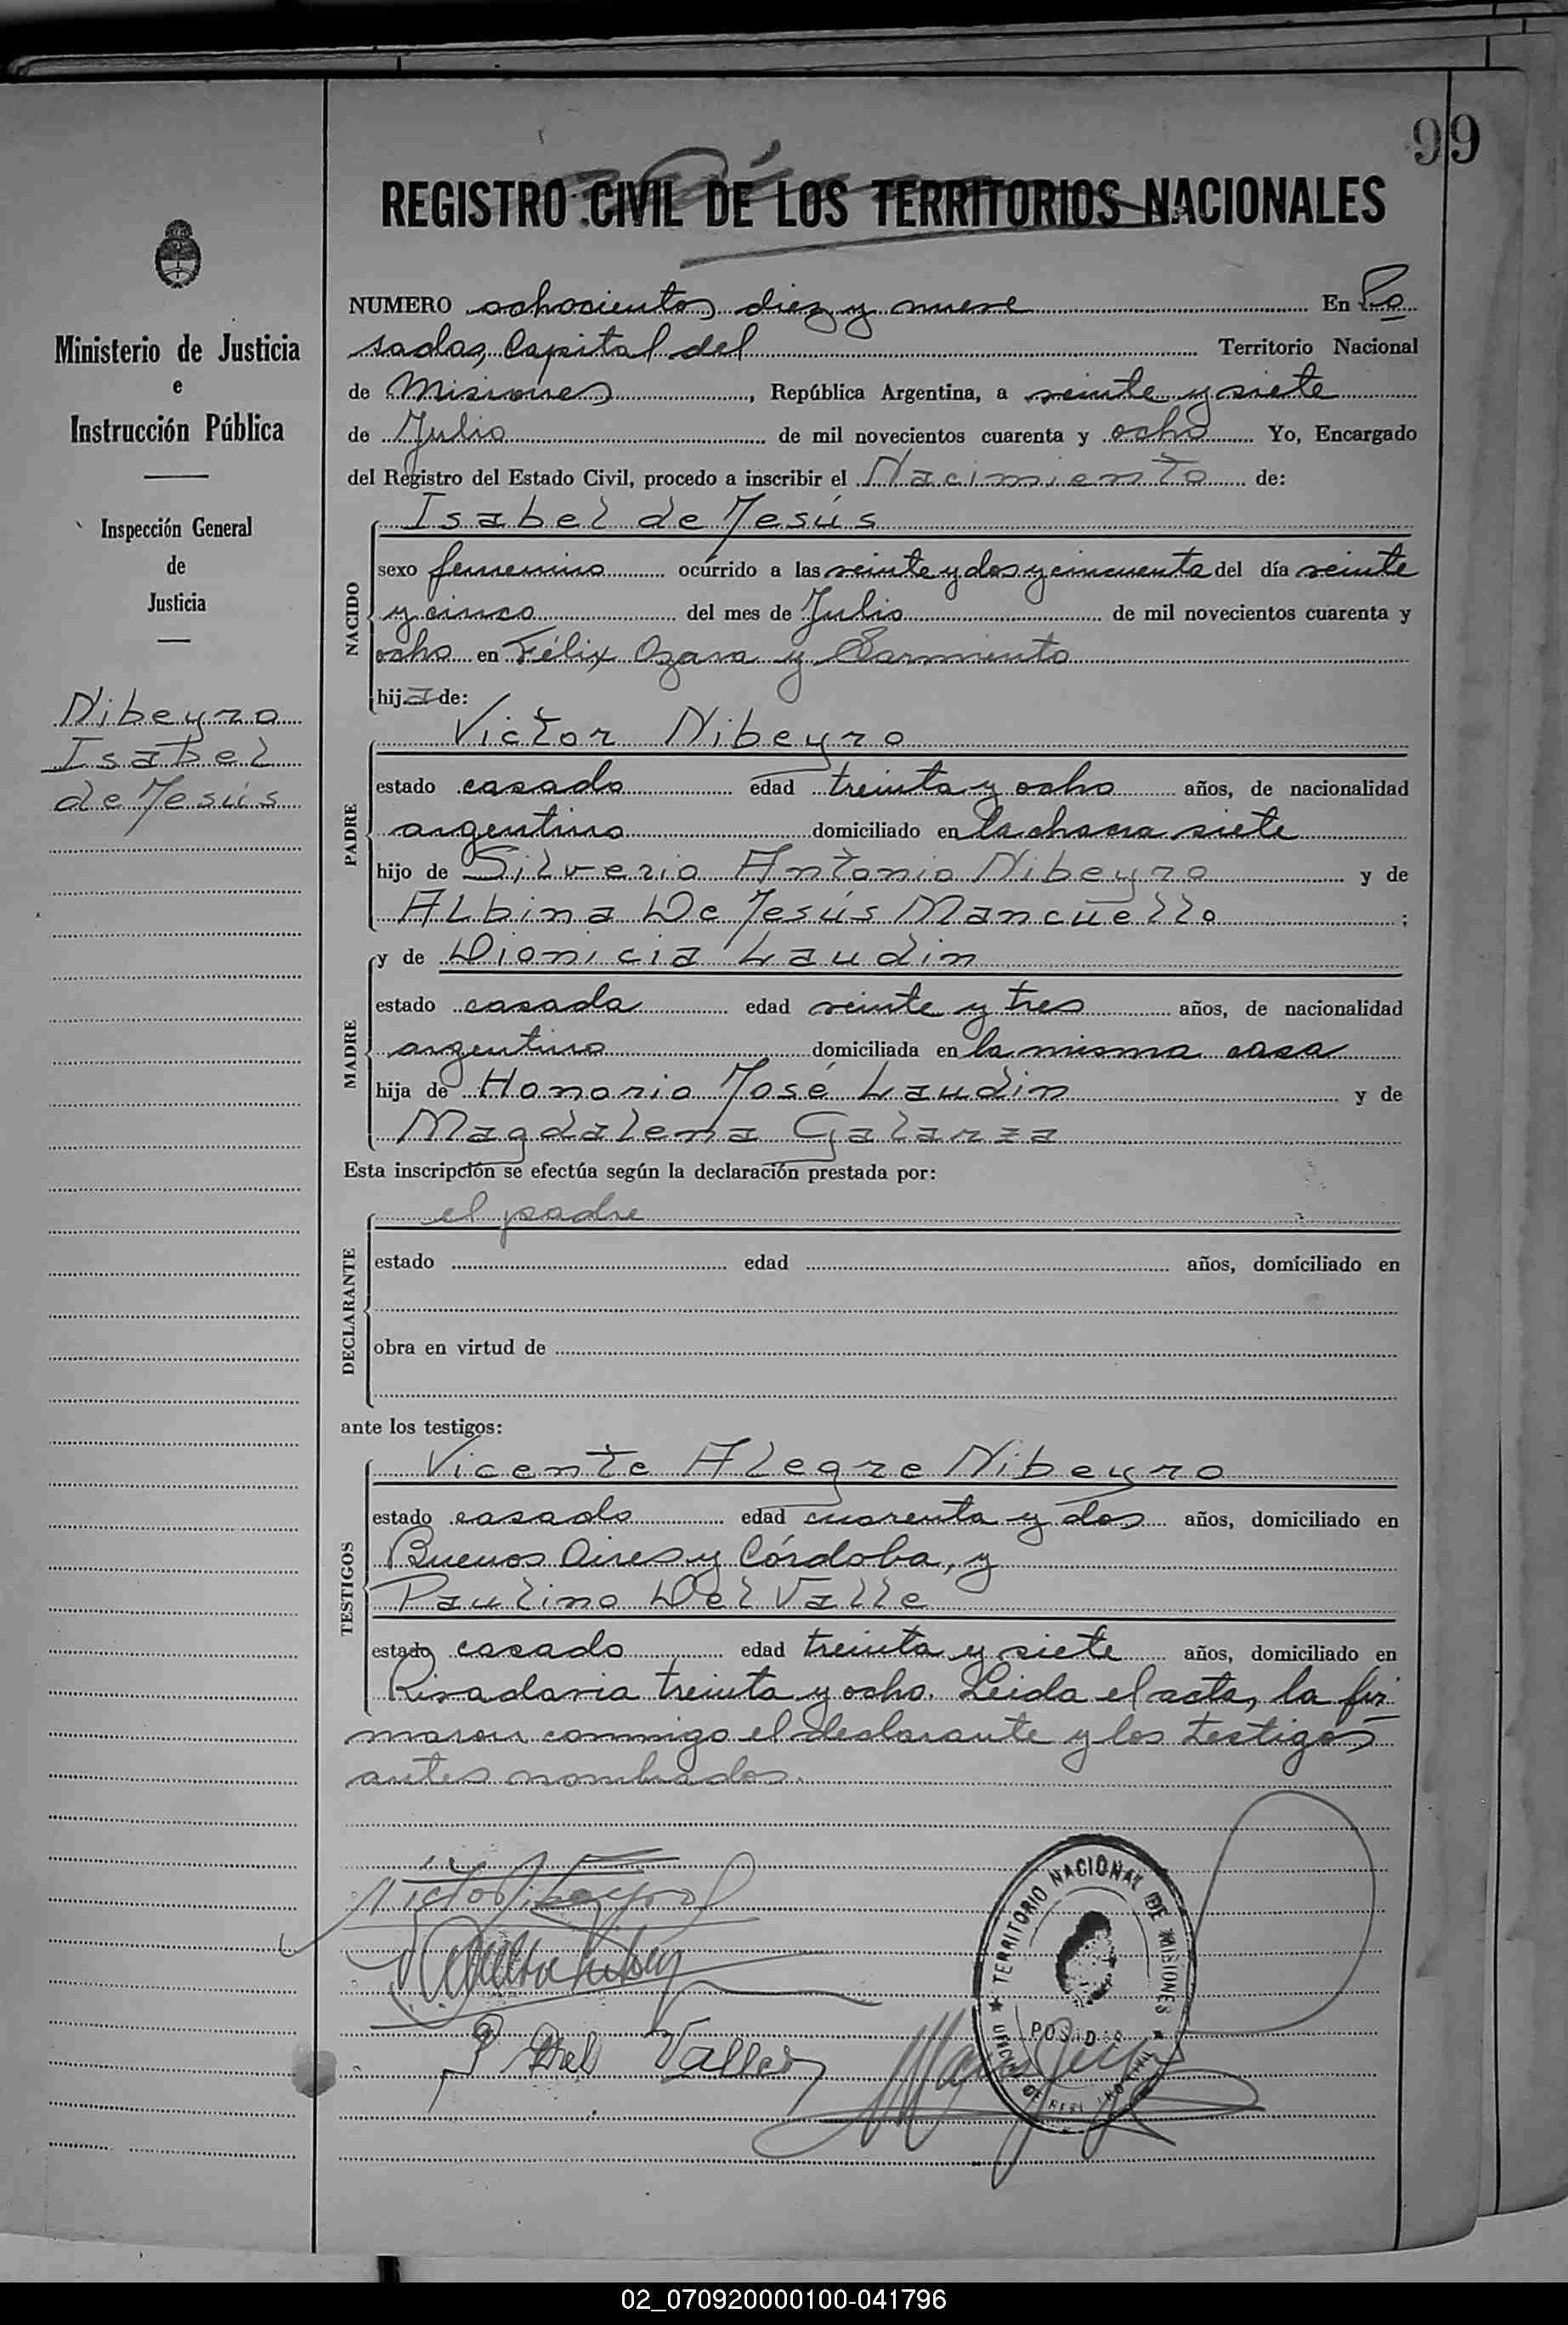 99
REGISTRO CIVIL DE LOS TERRITORIOS NACIONALES
Ministerio de Justicia
e
Instrucción Pública
Inspección General
de
Justicia
Nibeyro
Isabel
de Jesús
NUMERO ochocientos diez y nueve En Po
sadas, Capital del Territorio Nacional
de Misiones, República Argentina, a veinte y siete
de Julio de mil novecientos cuarenta y ocho Yo, Encargado
del Registro del Estado Civil, procedo a inscribir el Nacimiento de:
Isabel de Jesús
NACIDO
sexo femenino ocurrido a las veinte y dos y cincuenta del día veinte
y cinco del mes de Julio de mil novecientos cuarenta y
ocho en Félix Azara y Sarmiento
hija de:
Victor Nibeyro
PADRE
estado casado edad treinta y ocho años, de nacionalidad
argentino domiciliado en la chacra siete
hijo de Silverio Antonio Nibeyro y de
Albina De Jesús Mancuello;
y de Dionicia Laudin
MADRE
estado casada edad veinte y tres años, de nacionalidad
argentina domiciliada en la misma casa
hija de Honorio José Laudin y de
Magdalena Galarza
Esta inscripción se efectúa según la declaración prestada por:
el padre
DECLARANTE
estado edad años, domiciliado en
obra en virtud de
ante los testigos:
Vicente Alegre Nibeyro
TESTIGOS
estado casado edad cuarenta y dos años, domiciliado en
Buenos Aires y Córdoba, y
Paulino Del Valle
estado casado edad treinta y siete años, domiciliado en
Rivadavia treinta y ocho. Leida el acta, la fir
maron conmigo el declarante y los testigos
antes nombrados.
P Del Valle
TERRITORIO NACIONAL DE MISIONES
POSADAS
OFICINA DE REGISTRO CIVIL
02_070920000100-041796